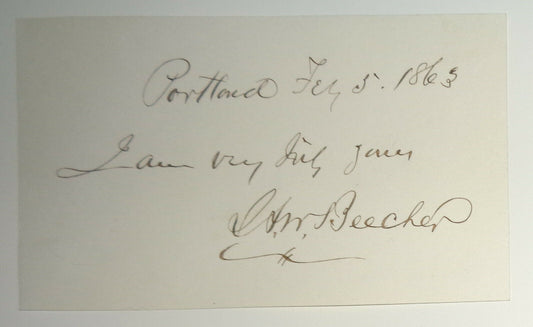 Portland Feb 5. 1863
I am very truly yours
H. W. Beecher